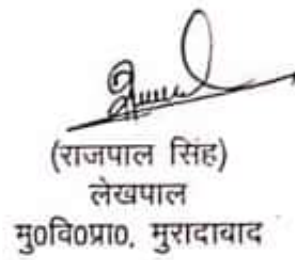 (राजपाल सिंह)
लेखपाल
मु0वि0प्रा0, मुरादावाद